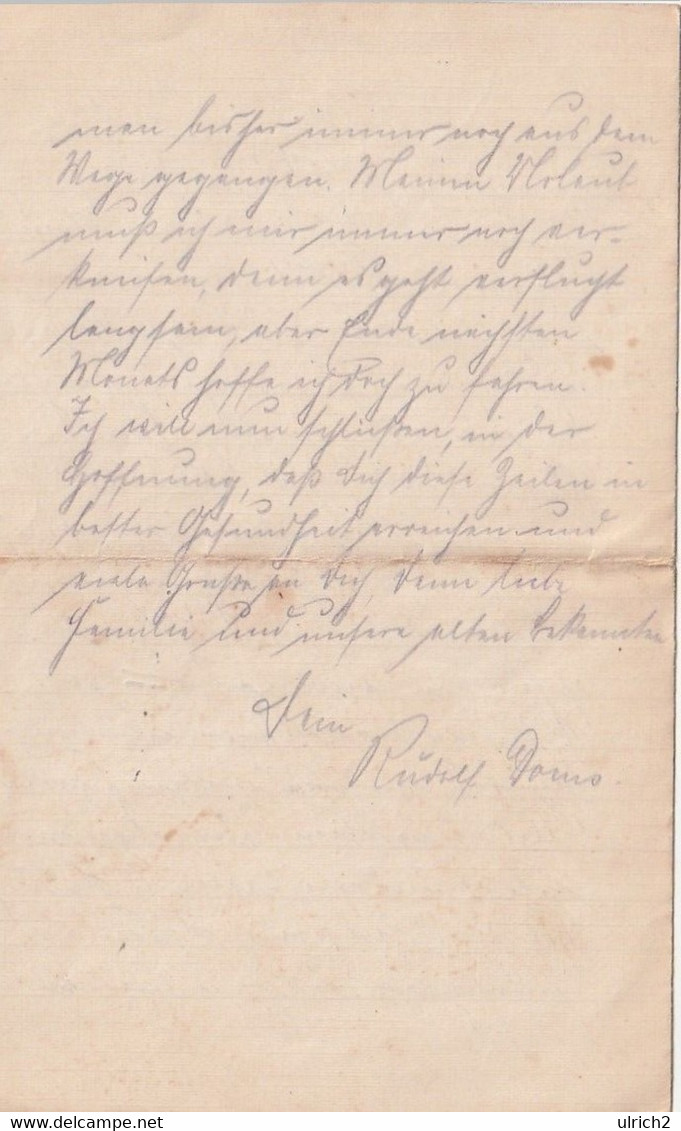 man bisher immer noch aus dem
Wege gegangen. Meinen Urlaub
muß ich mir immer noch ver-
kneifen, denn es geht verflucht
langsam, aber Ende nächsten
Monats hoffe ich doch zu fahren.
Ich will nun schließen, in der
Hoffnung, daß Dich diese Zeilen in
bester Gesundheit erreichen und
viele Grüße an Dich, Deine liebe
Familie und unsere alten Bekannten
Dein
Rudolf
delcampe.net
ulrich2